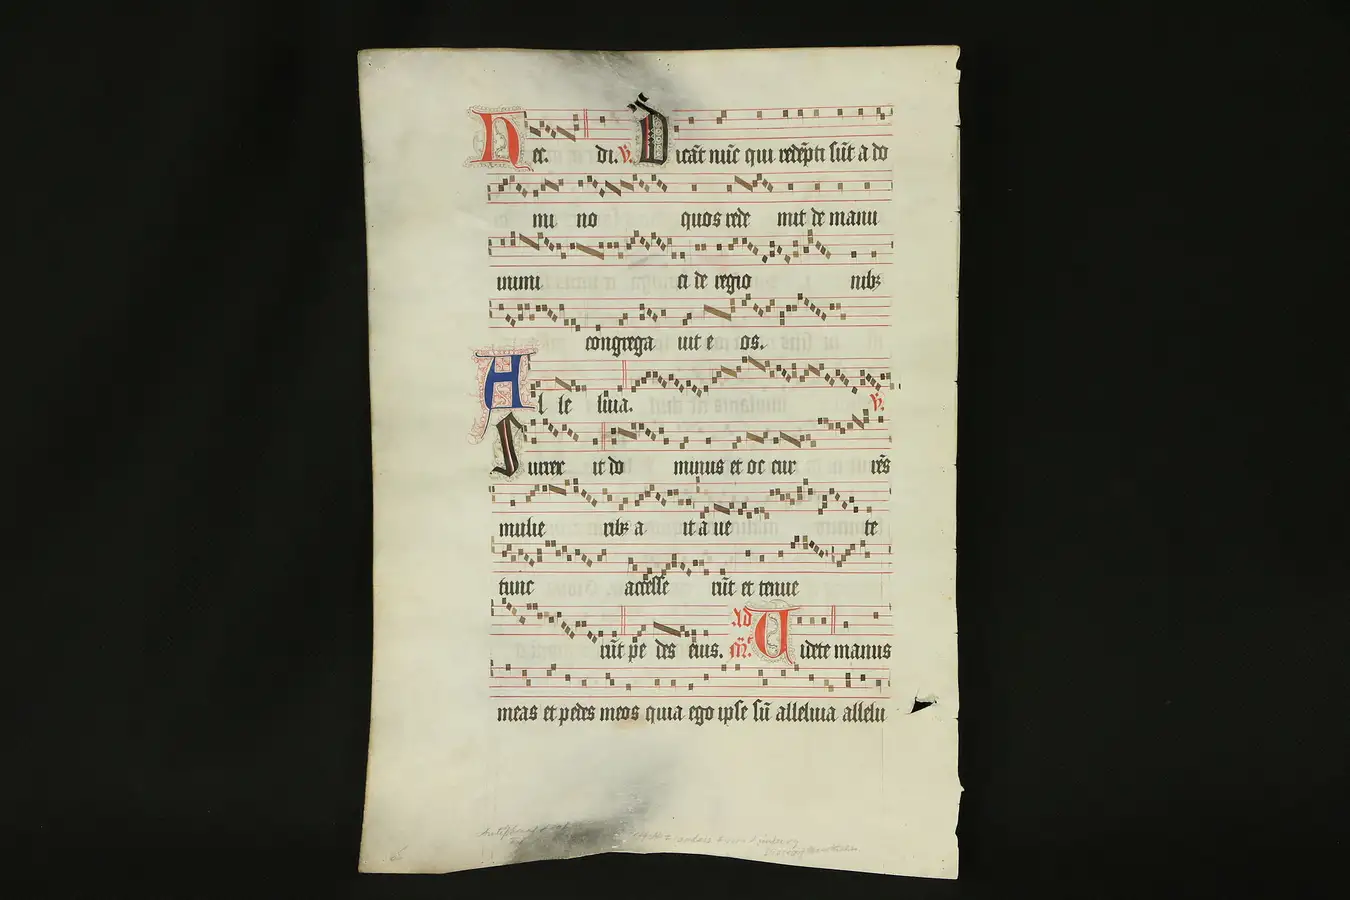 Hec. di. V. Dicāt nūc qui redēpti sūt a do
mi no quos rede mit de manu
inimi ci de regio nibꝫ
congrega uit e os.
Al le luia. V.
Surrex it do minus et oc cur rēs
mulie ribꝫ a it a ue te
tunc accesse rūt et tenue
rūt pe des eius. Ad M. Uidete manus
meas et pedes meos quia ego ipse sū alleluia allelu